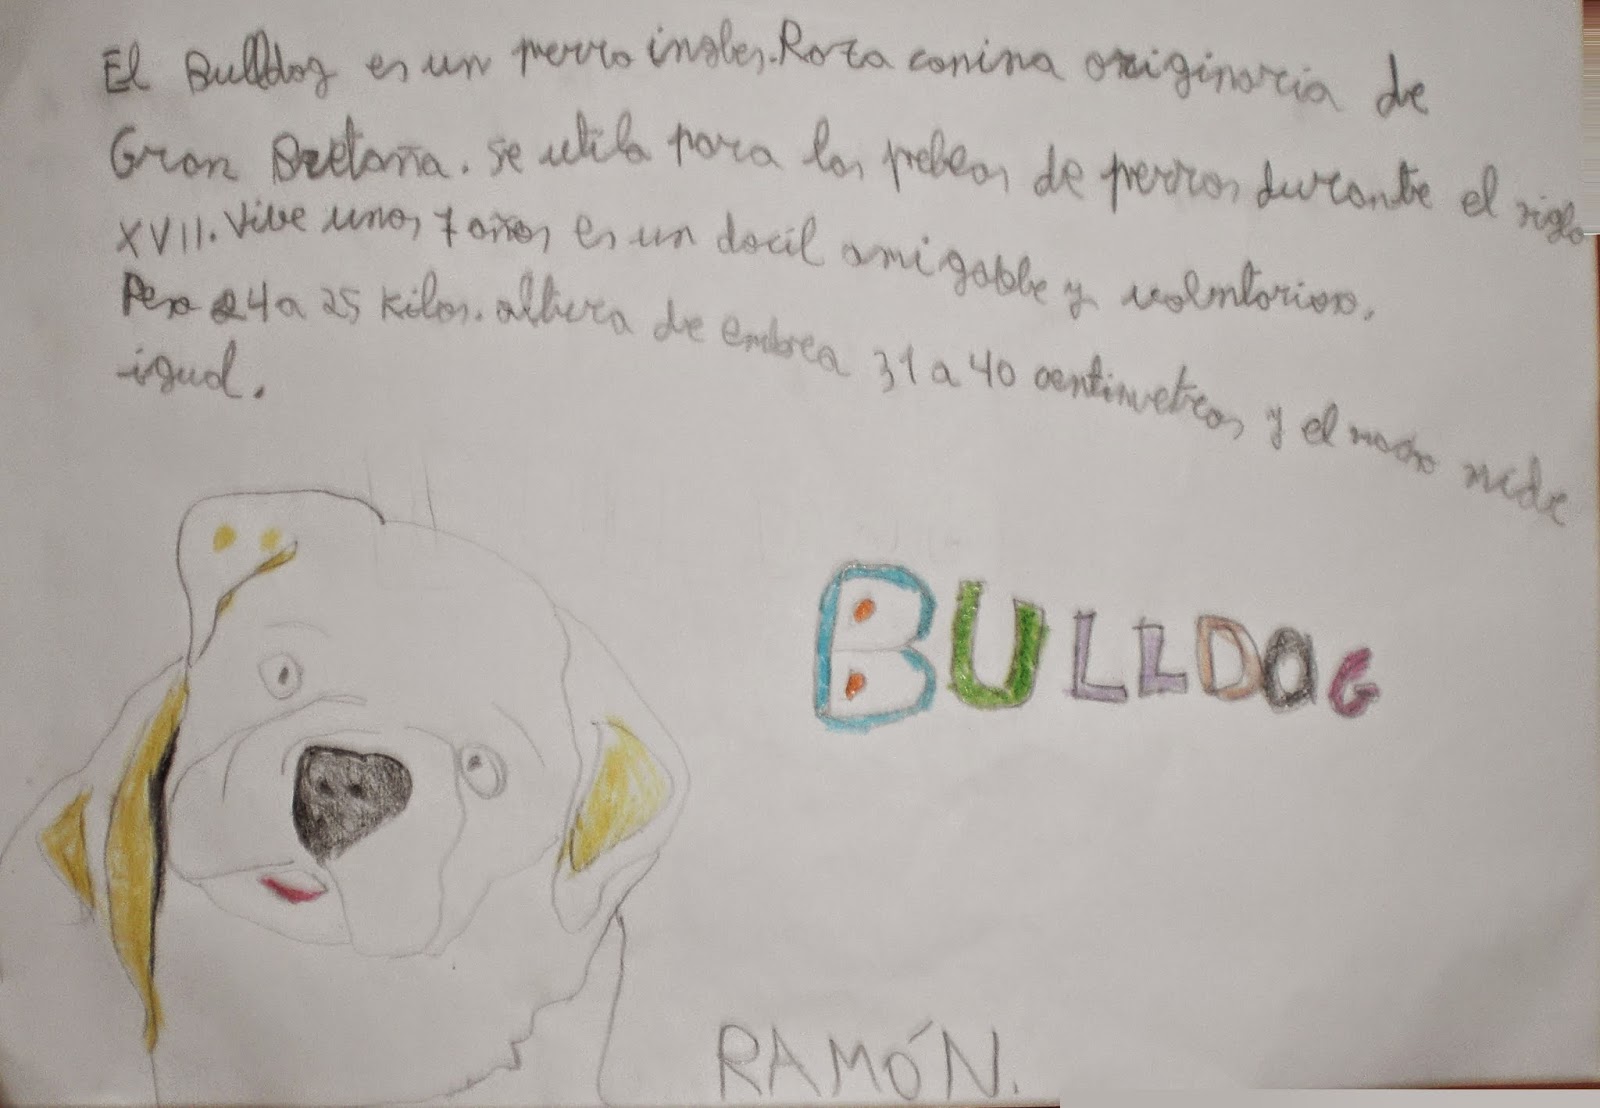 El Bulldog es un perro ingles. Raza canina originaria de
Gran Bretaña. Se utila para las pebleas de perros durante el siglo
XVII. Vive unos 7 años es un docil amigable y volontarioso.
Peso 24 a 25 kilos. altura de embrea 31 a 40 centimetros y el macho mide
igual.
BULLDOG
RAMÓN.